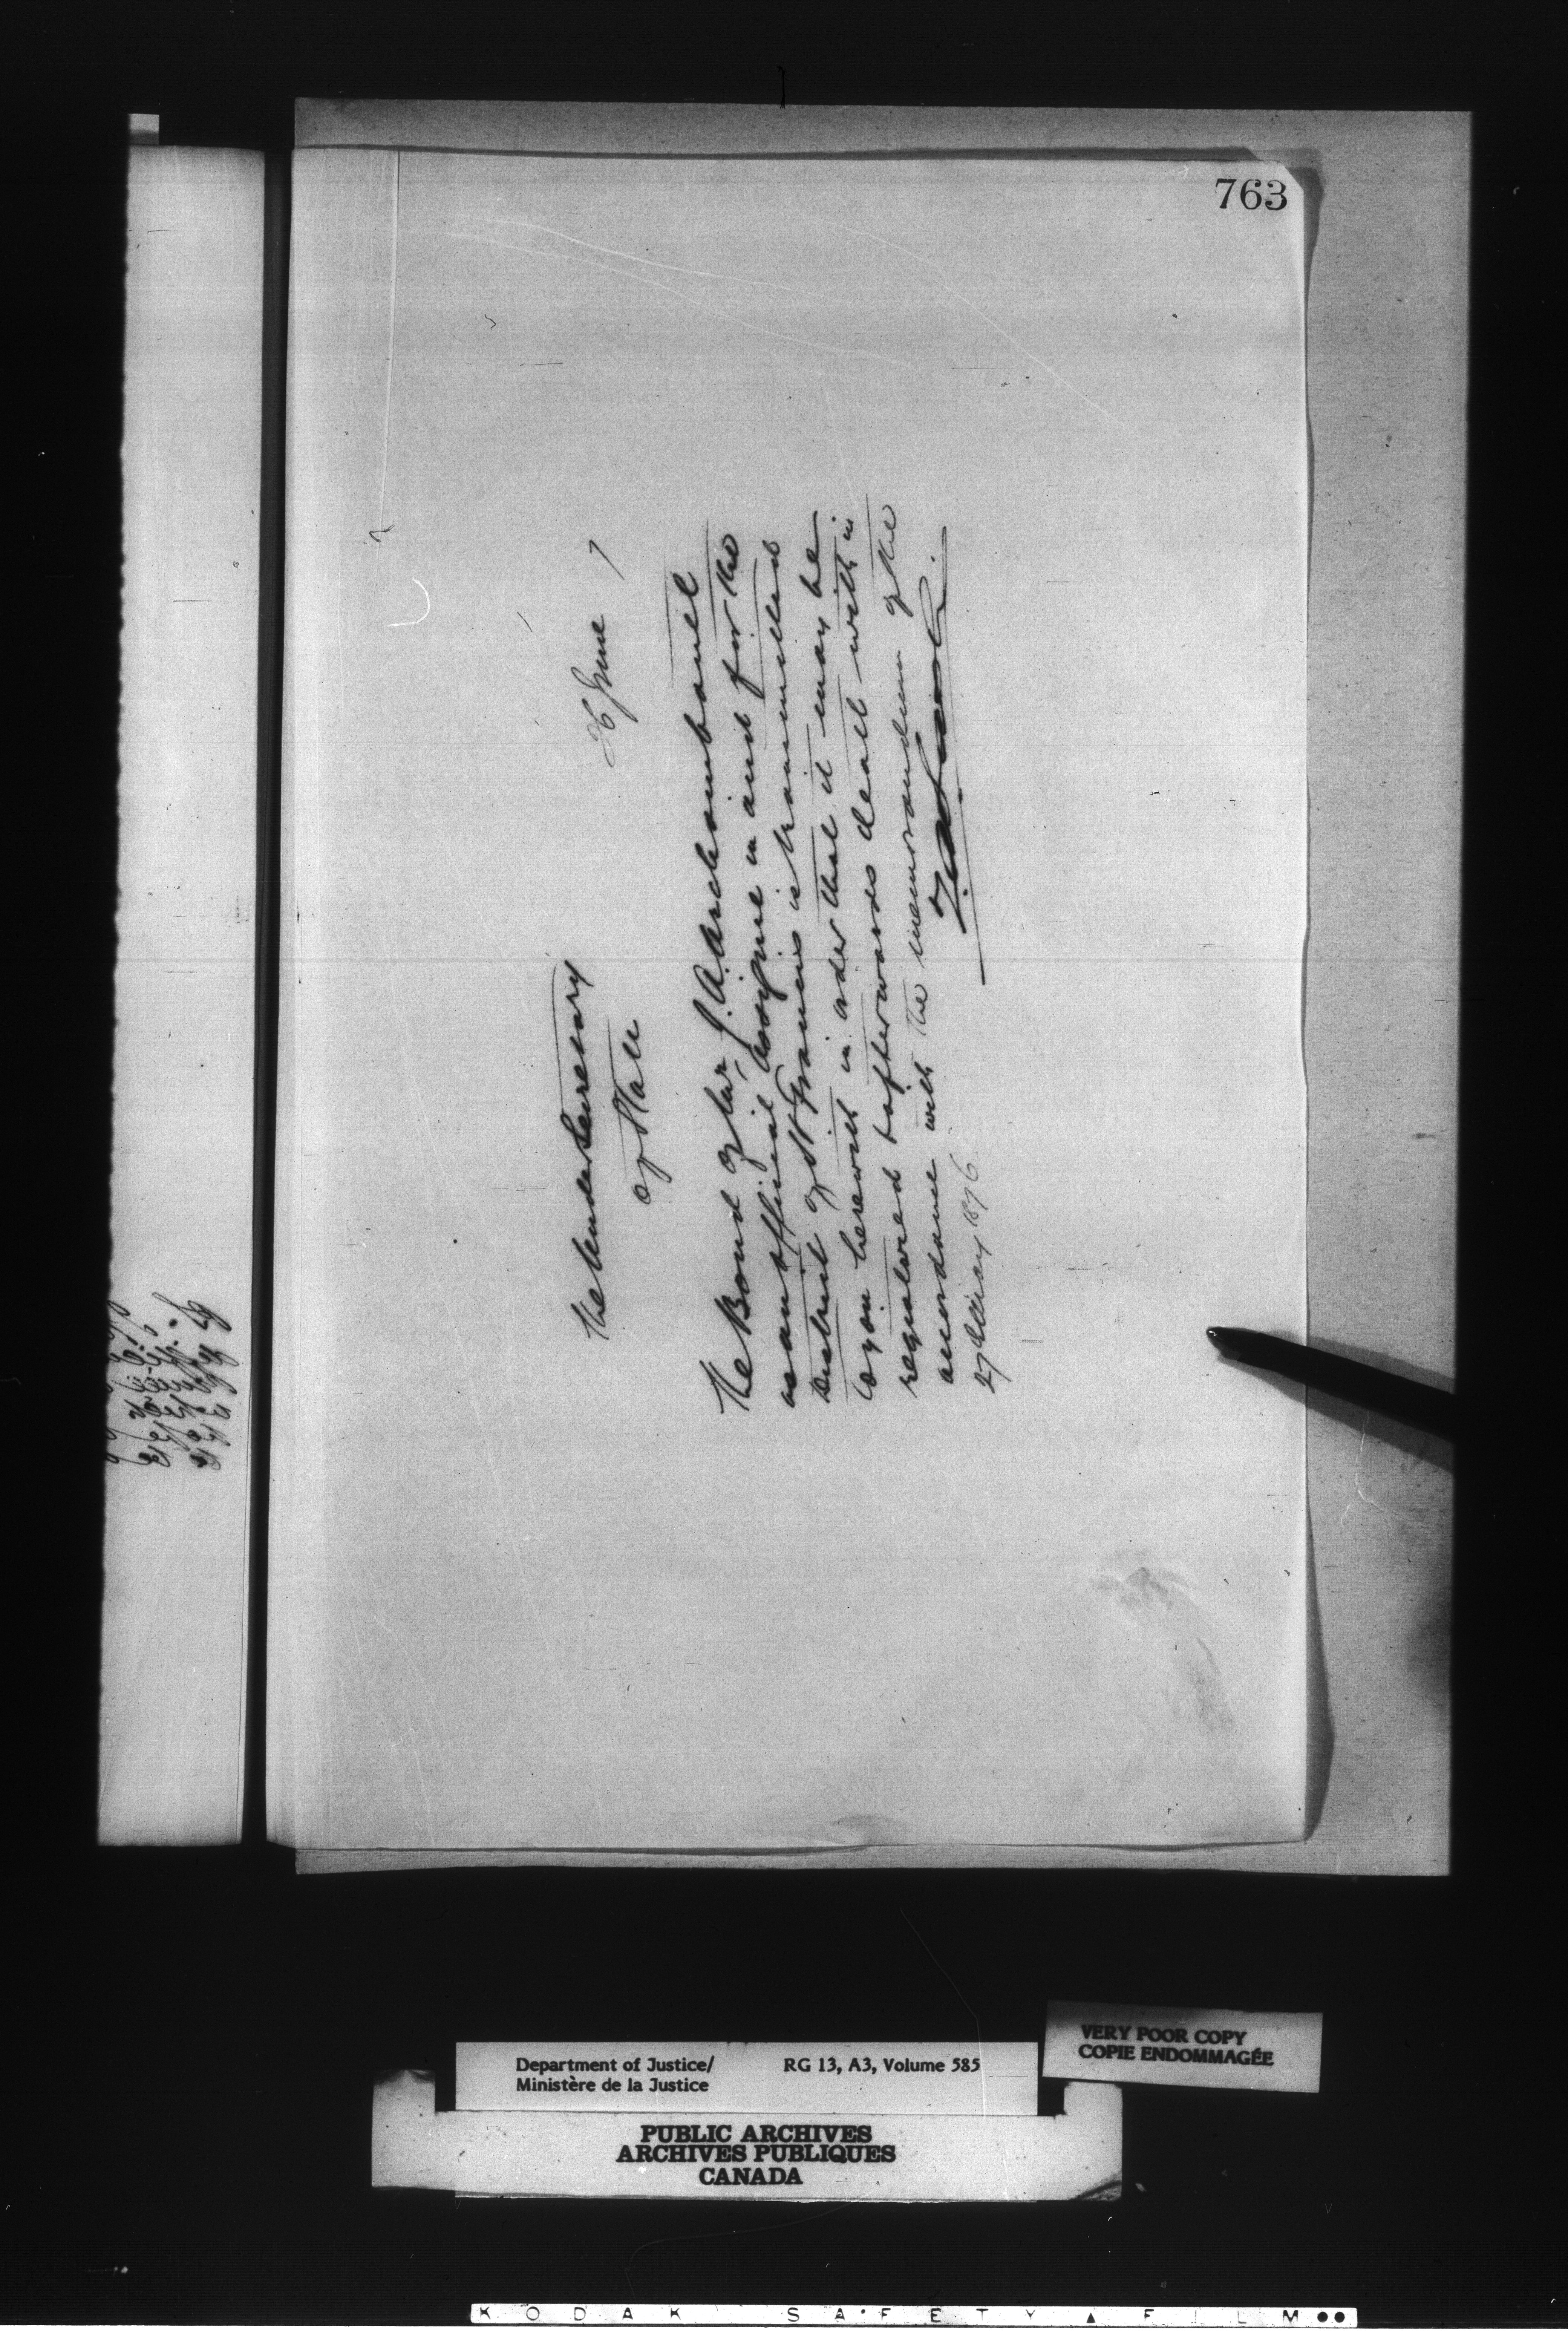 763
26 June 7
The Under Secretary
of State
The Bond of Mr J. A. Archambault
as an official Assignee in and for the
District of St Francis is transmitted
to you herewith in order that it may be
registered & afterwards dealt with in
accordance with the memorandum of the
27 May 1876
Department of Justice/
Ministère de la Justice
RG 13, A3, Volume 585
VERY POOR COPY
COPIE ENDOMMAGÉE
PUBLIC ARCHIVES
ARCHIVES PUBLIQUES
CANADA
KODAK SAFETY ▲ FILM ●●